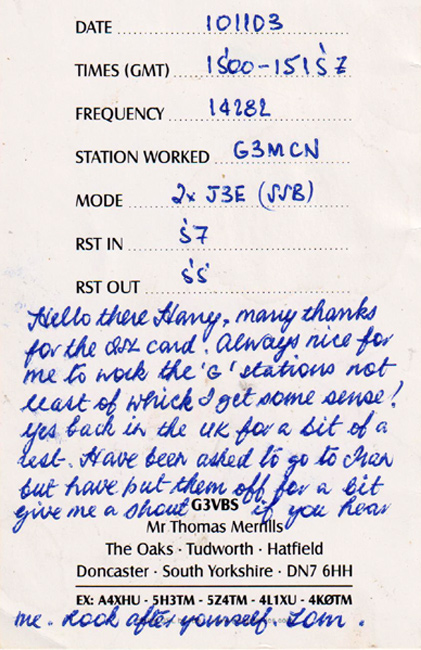 DATE 101103
TIMES (GMT) 1500-1515Z
FREQUENCY 14282
STATION WORKED G3MCN
MODE 2x J3E (SSB)
RST IN 57
RST OUT 55
Hello there Harry, many thanks
for the QSL card. Always nice for
me to work the 'G' stations not
least of which I get some sense!
Yes back in the UK for a bit of a
rest. Have been asked to go to Iran
but have put them off for a bit
give me a shout if you hear
G3VBS
Mr Thomas Merrills
The Oaks · Tudworth · Hatfield
Doncaster · South Yorkshire · DN7 6HH
EX: A4XHU - 5H3TM - 5Z4TM - 4L1XU - 4KØTM
me. Look after yourself. Tom.